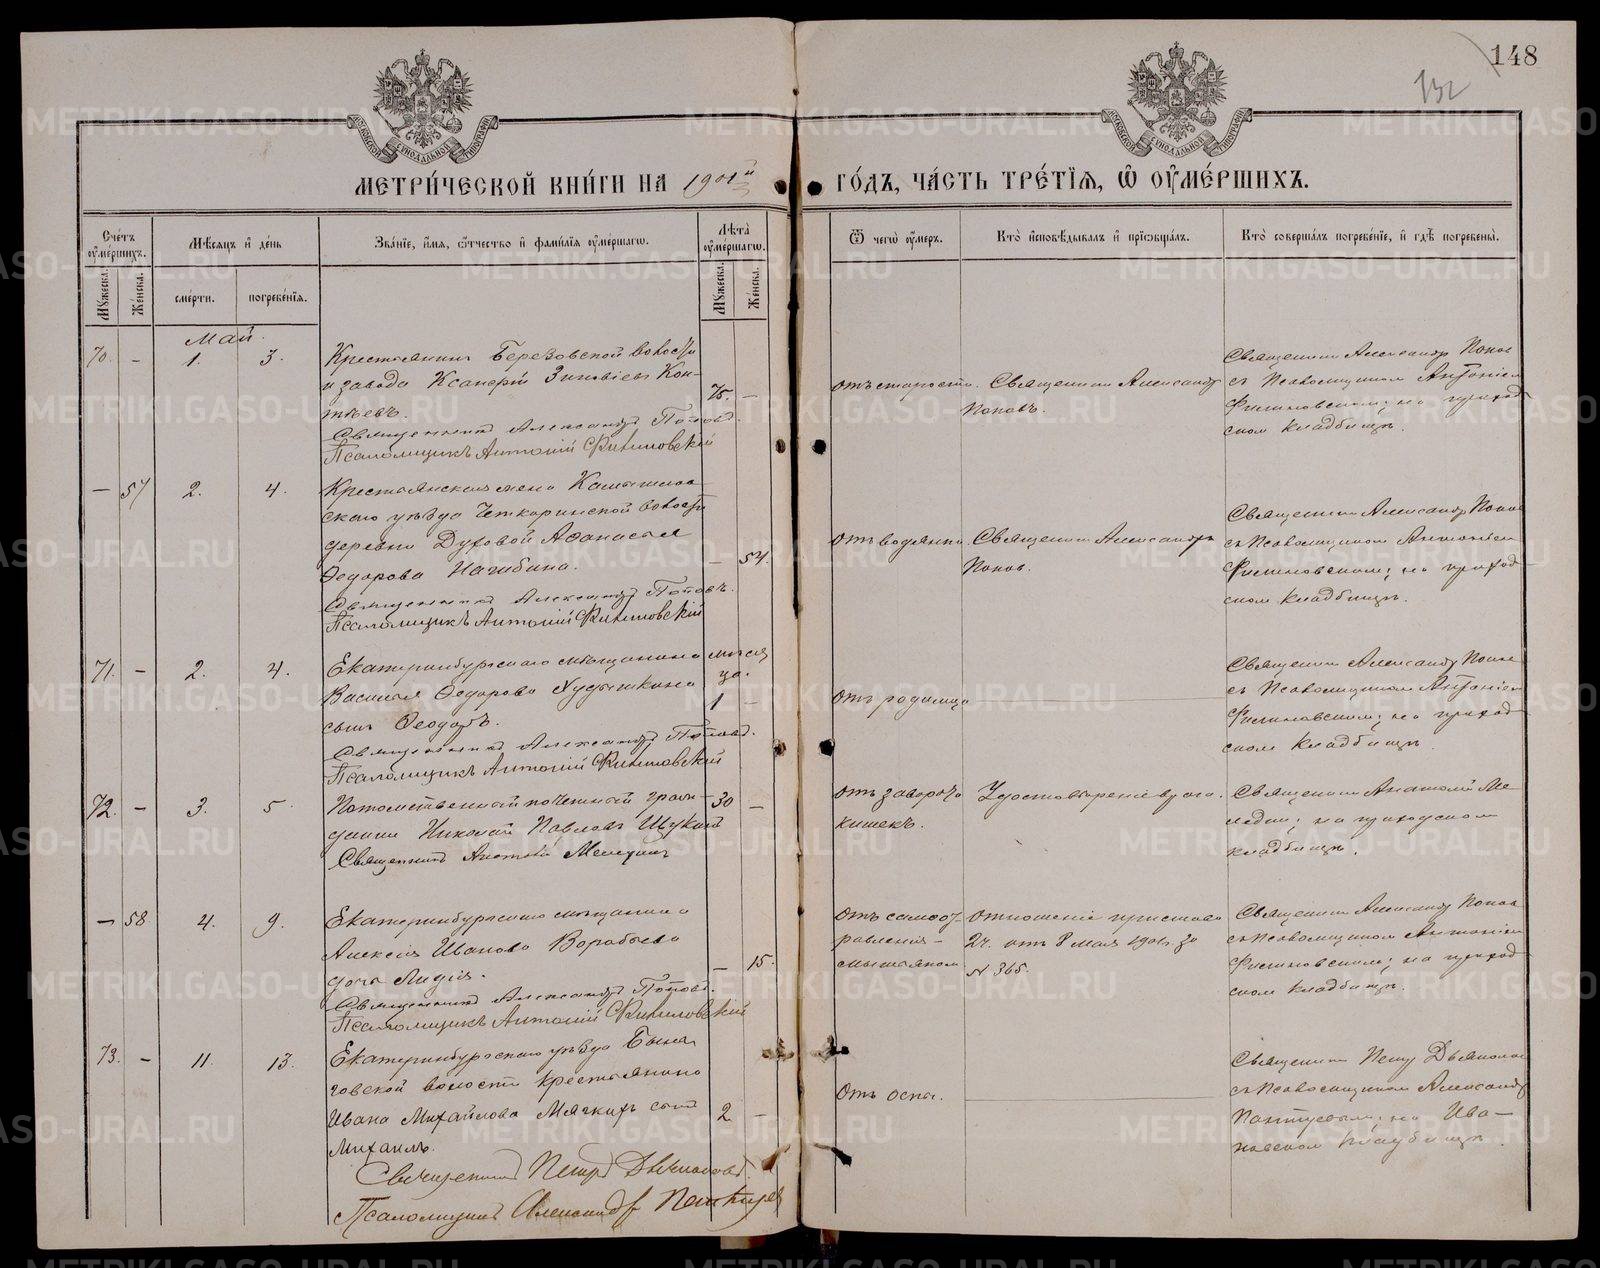 148
132
МЕТРИ́ЧЕСКОЙ КНИ́ГИ НА 1901й
ГО́ДЪ, ЧА́СТЬ ТРЕ́ТІЯ, Ѿ ОУМЕ́РШИХЪ.
Счетъ оумершихъ.
Мужеска.
Женска.
Мѣсяцъ и день
смерти.
погребенія.
Званіе, имя, отчество и фамилія оумершаго.
Лѣта оумершаго.
Мужеска.
Женска.
Ѿ чегѡ оумеръ.
Кто исповѣдывалъ и пріобщалъ.
Кто совершалъ погребеніе, и гдѣ погребены.
Май.
70. - 1. 3.
Крестьянинъ Березовской волости
и завода Ксанфій Зиновіевъ Коп-
тѣевъ.
75. -
Священникъ Александръ Поповъ.
Псаломщикъ Антоній Филиповскій
отъ старости.
Священникъ Александръ
Поповъ.
Священникъ Александръ Попов
съ Псаломщикомъ Антоніем
на приход-
скомъ кладбищѣ.
- 57 2. 4.
Крестьянская жена Камышлов
скаго уѣзда Четкаринской волости
деревни Духовой Афанасья
Федорова Нагибина.
- 54.
Священникъ Александръ Поповъ.
Псаломщикъ Антоній Филиповскій
отъ водянки.
Священникъ Александръ
Попов.
Священникъ Александръ Попов
съ Псаломщикомъ Антоніем
на приход-
скомъ кладбищѣ.
71. - 2. 4.
Екатеринбургскаго мѣщанина
Василья Федорова
сынъ Феодоръ.
мѣся
ца.
1 -
Священникъ Александръ Поповъ.
Псаломщикъ Антоній Филиповскій
отъ родимца
Священникъ Александръ Попов
съ Псаломщикомъ Антоніем
на приход-
скомъ кладбищѣ.
72. - 3. 5
Потомственный почетный граж-
данинъ Николай Павловъ Щукинъ
30 -
Священникъ Анатолій
отъ заворота
кишекъ.
Удостовѣреніе врача.
Священникъ Анатолій
на приходском
кладбищѣ.
- 58. 4. 9.
Екатеринбургскаго мѣщанина
Алексія Иванова Воробьева
дочь Лидія.
- 15.
Священникъ Александръ Поповъ.
Псаломщикъ Антоній Филиповскій
отъ самоот
равленія
мышьяком
отношеніе пристава
2 ч. отъ 8 мая 1901 за
№ 365.
Священникъ Александръ Попов
съ Псаломщикомъ Антоніем
на приход-
ском кладбищѣ.
73. - 11. 13.
Екатеринбургскаго уѣзда Бынь
говской волости крестьянина
Ивана Михайлова Мягкихъ сынъ
Михаилъ.
2 -
Священникъ Петръ
Псаломщикъ Александръ
отъ оспы.
Священникъ Петръ
съ Псаломщикомъ Александр
на Ива-
новском кладбищѣ.
METRIKI.GASO-URAL.RU